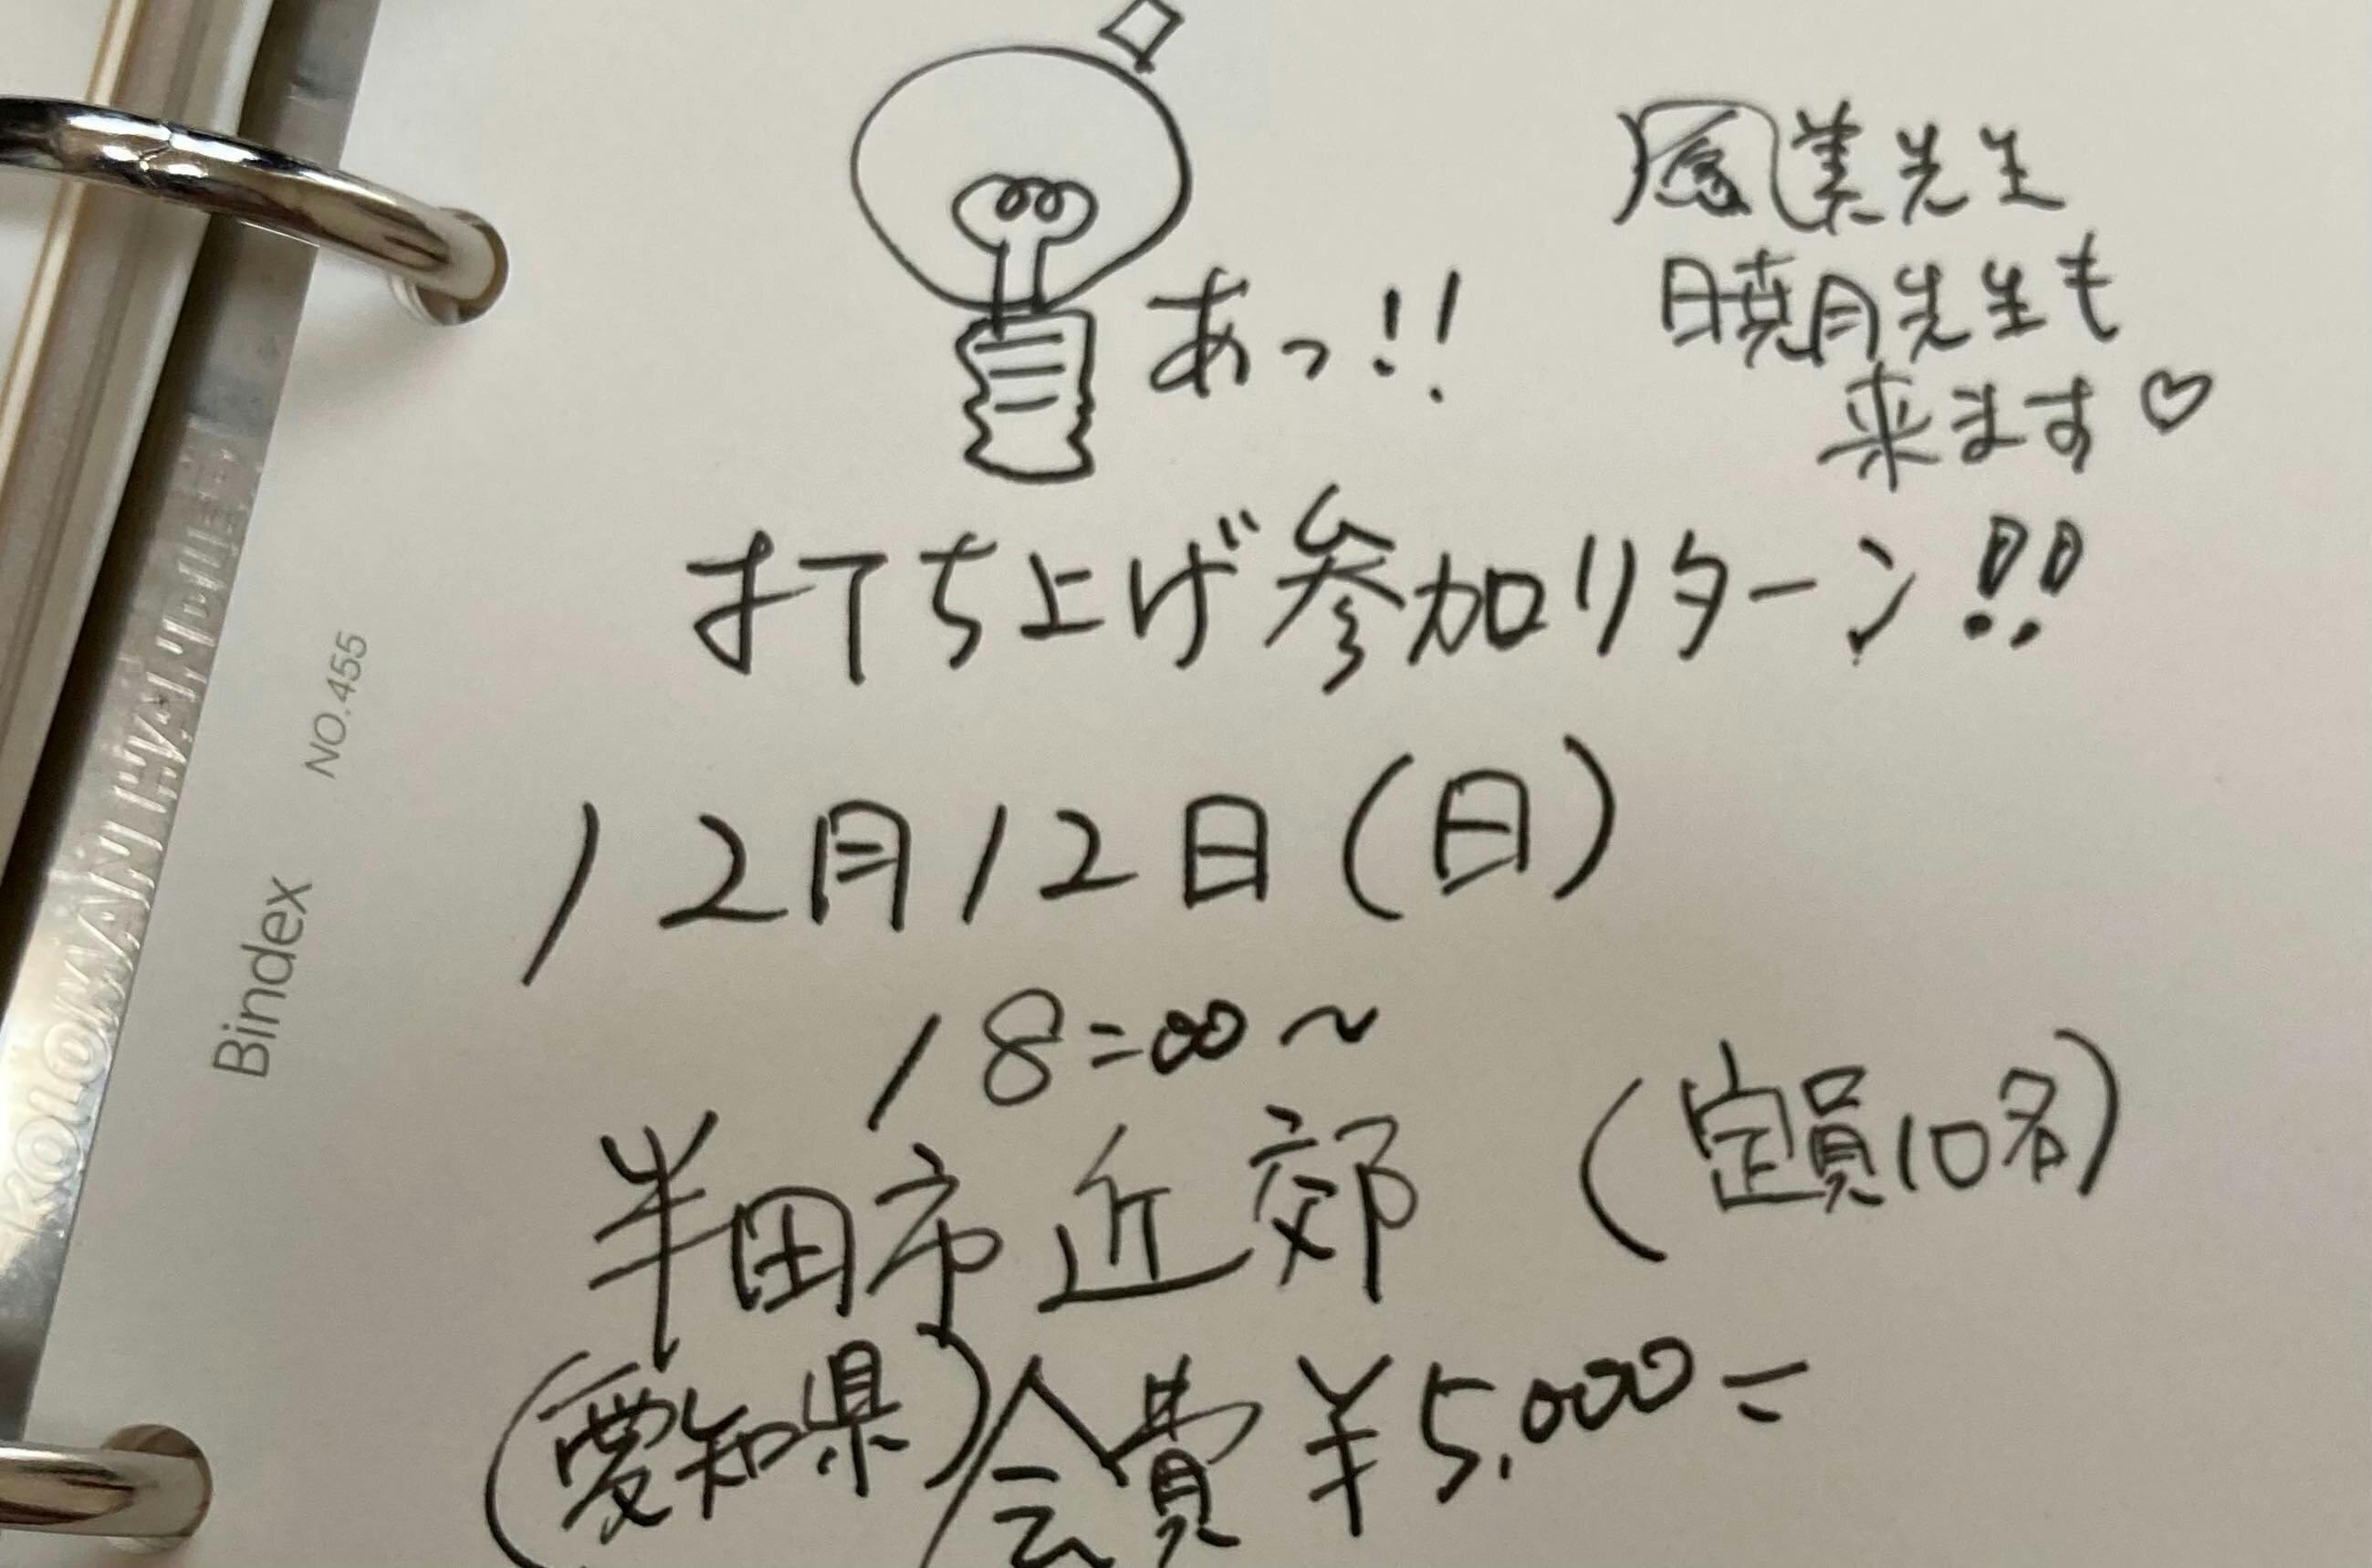 美先生
暁月先生も
来ます♡
あっ!!
打ち上げ参加リターン!!
12月12日(日)
18:00~
半田市近郊
(定員10名)
(愛知県)
会費¥5,000=
Bindex NO.455